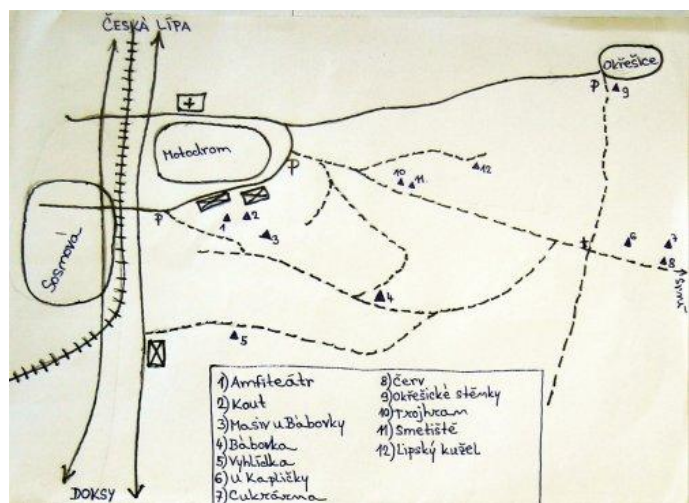 ČESKÁ LÍPA
OKŘEŠICE
P 9
Motodrom
P
10
11
12
1 2
3
P
Sosnová
6 7
8
4
5
DOKSY
1) Amfiteátr
2) Kout
3) Masiv u Bábovky
4) Bábovka
5) Vyhlídka
6) U Kapličky
7) Cukrárna
8) Červ
9) Okřešické stěnky
10) Trojhran
11) Smetiště
12) Lipský kužel